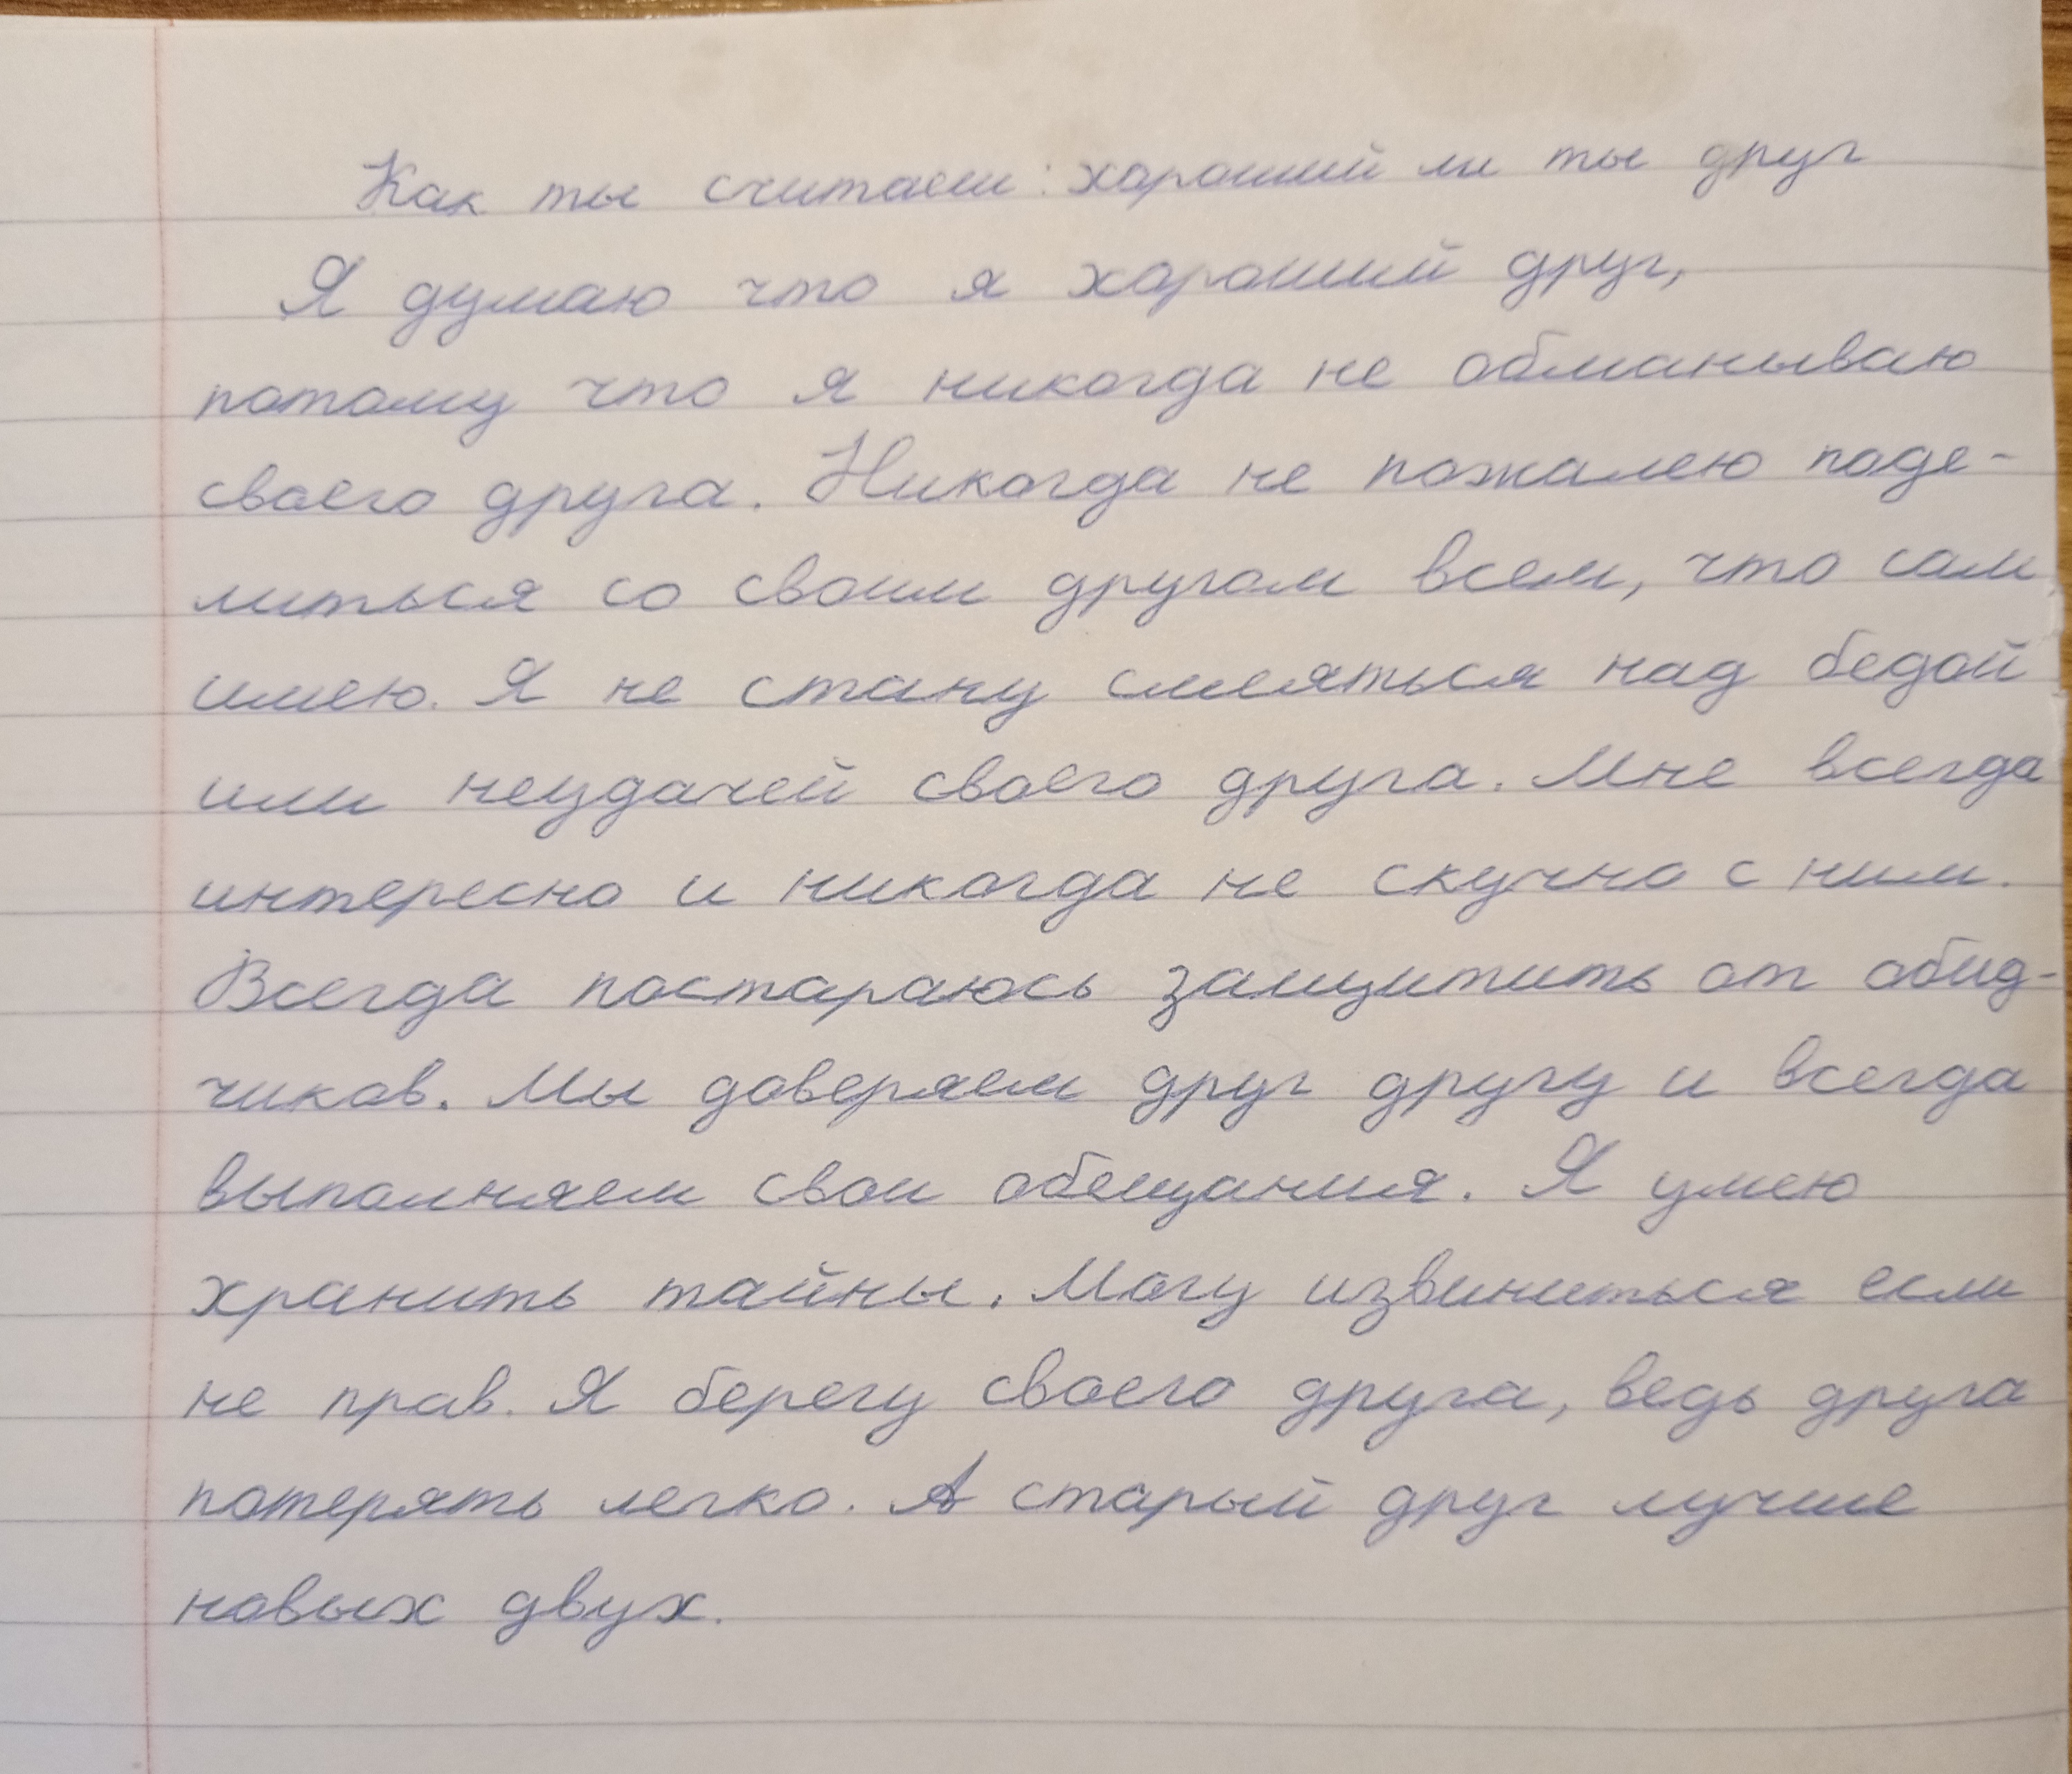 Как ты считаеш: хороший ли ты друг
Я думаю что я хороший друг,
потому что я никогда не обманываю
своего друга. Никогда не пожалею поде-
литься со своим другом всем, что сам
имею. Я не стану смеяться над бедой
или неудачей своего друга. Мне всегда
интересно и никогда не скучно с ним.
Всегда постараюсь защитить от обид-
чиков. Мы доверяем друг другу и всегда
выполняем свои обещания. Я умею
хранить тайны. Могу извиниться если
не прав. Я берегу своего друга, ведь друга
потерять легко. А старый друг лучше
новых двух.